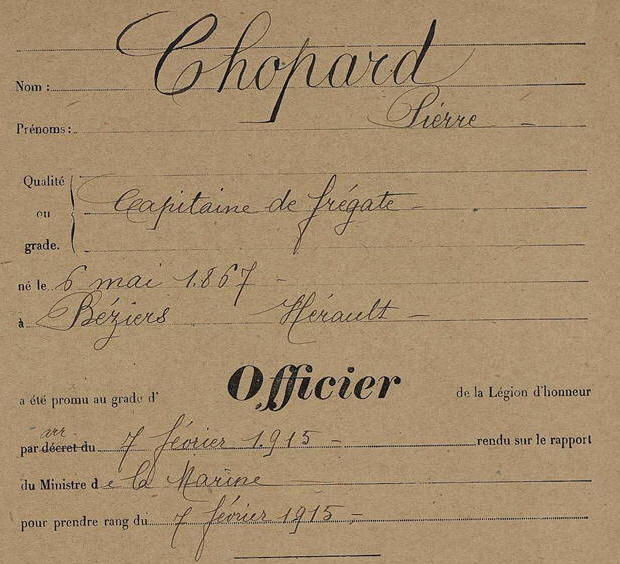 Nom : Chopard
Prénoms : Pierre
Qualité
ou Capitaine de frégate
grade.
né le 6 mai 1.867
à Béziers Hérault
a été promu au grade d' Officier de la Légion d'honneur
arr
par décret du 7 février 1.915 rendu sur le rapport
du Ministre de la Marine
pour prendre rang du 7 février 1915